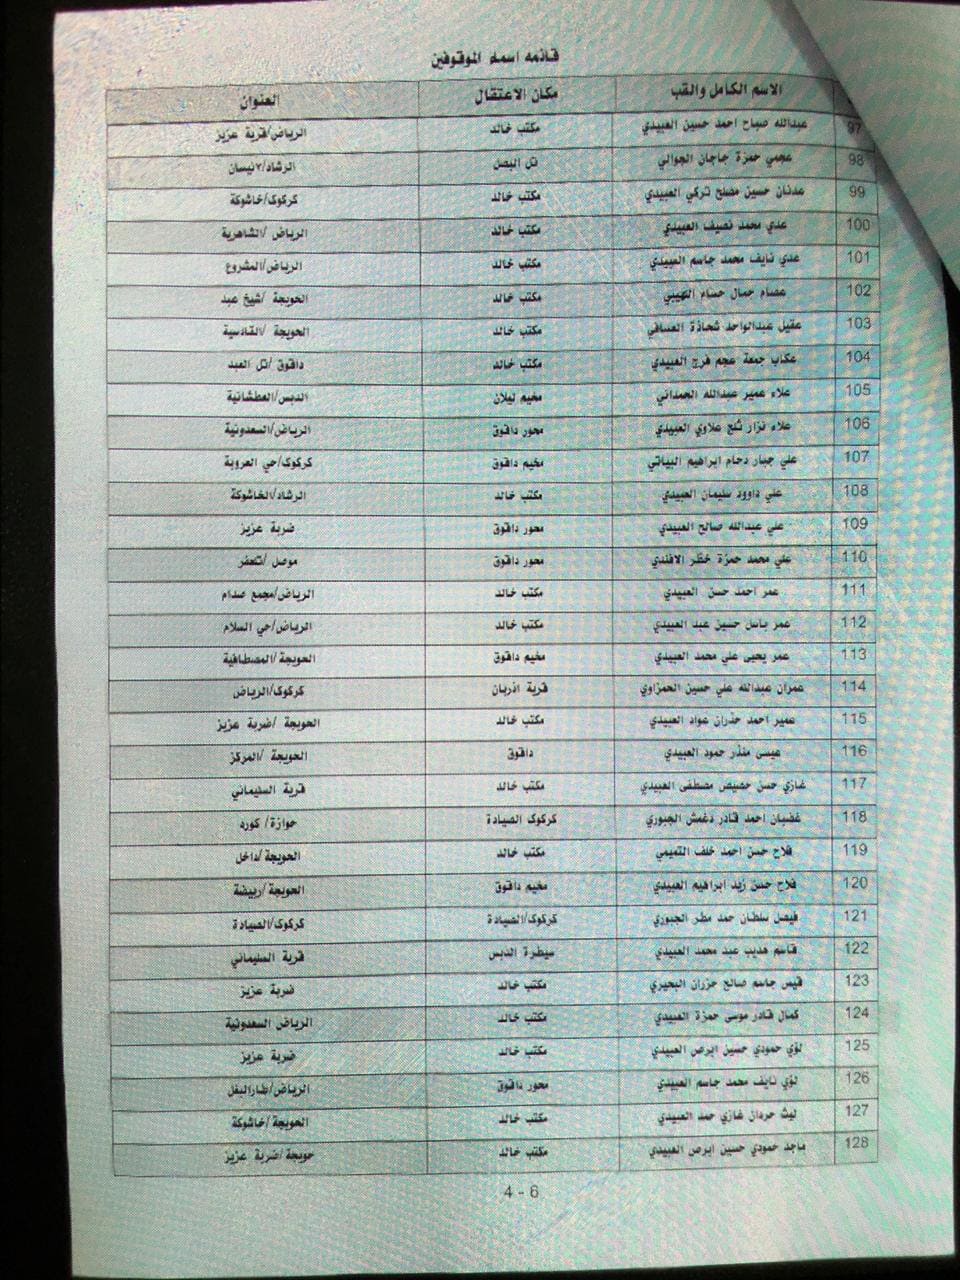 قائمه اسماء الموقوفين
الاسم الكامل والقب مكان الاعتقال العنوان
97 عبدالله صباح احمد حسين العبيدي مكتب خالد الرياض/قرية عزيز
98 عجمي حمزة جاجان الجوالي تل البصل الرشاد/٧نيسان
99 عدنان حسين مصلح تركي العبيدي مكتب خالد كركوك/خاشوكة
100 عدي محمد نصيف العبيدي مكتب خالد الرياض /الشاهرية
101 عدي نايف محمد جاسم العبيدي مكتب خالد الرياض/المشروع
102 عصام جمال حسام مكتب خالد الحويجة /شيخ عبد
103 عقيل عبدالواحد شحاذة العسافي مكتب خالد الحويجة /القادسية
104 عكاب جمعة عجم فرج العبيدي مكتب خالد داقوق /تل العبد
105 علاء عمير عبدالله الحمداني مخيم ليلان الدبس/العطشانية
106 علاء نزار ثلج علاوي العبيدي محور داقوق الرياض/السعدونية
107 علي جبار دحام ابراهيم البياتي مخيم داقوق كركوك/حي العروبة
108 علي داوود سليمان العبيدي مكتب خالد الرشاد/الخاشوكة
109 علي عبدالله صالح العبيدي محور داقوق ضربة عزيز
110 علي محمد حمزة خظر الافندي محور داقوق موصل /تلعفر
111 عمر احمد حسن العبيدي مكتب خالد الرياض/مجمع صدام
112 عمر باسل حسين عبد العبيدي مكتب خالد الرياض/حي السلام
113 عمر يحيى علي محمد العبيدي مخيم داقوق الحويجة /المصطافية
114 عمران عبدالله علي حسين الحمزاوي قرية اذربان كركوك/الرياض
115 عمير احمد حذران عواد العبيدي مكتب خالد الحويجة /ضربة عزيز
116 عيسى منذر حمود العبيدي داقوق الحويجة /المركز
117 غازي حسن حصيص مصطفى العبيدي مكتب خالد قرية السليماني
118 غضبان احمد قادر دغمش الجبوري كركوك الصيادة حوازة/ كورد
119 فلاح حسن احمد خلف التميمي مكتب خالد الحويجة /داخل
120 فلاح حسن زيد ابراهيم العبيدي مخيم داقوق الحويجة /ربيضة
121 فيصل سلطان حمد مطر الجبوري كركوك/الصيادة كركوك/الصيادة
122 قاسم هديب عبد محمد العبيدي سيطرة الدبس قرية السليماني
123 قيس جاسم صالح جزران البحيري مكتب خالد ضربة عزيز
124 كمال قادر موسى حمزة العبيدي مكتب خالد الرياض السعدونية
125 لؤي حمودي حسين ابرص العبيدي مكتب خالد ضربة عزيز
126 لؤي نايف محمد جاسم العبيدي محور داقوق الرياض/طارالبغل
127 ليث حردان غازي حمد العبيدي مكتب خالد الحويجة /خاشوكة
128 ماجد حمودي حسين ابرص العبيدي مكتب خالد حويجة /ضربة عزيز
4 - 6